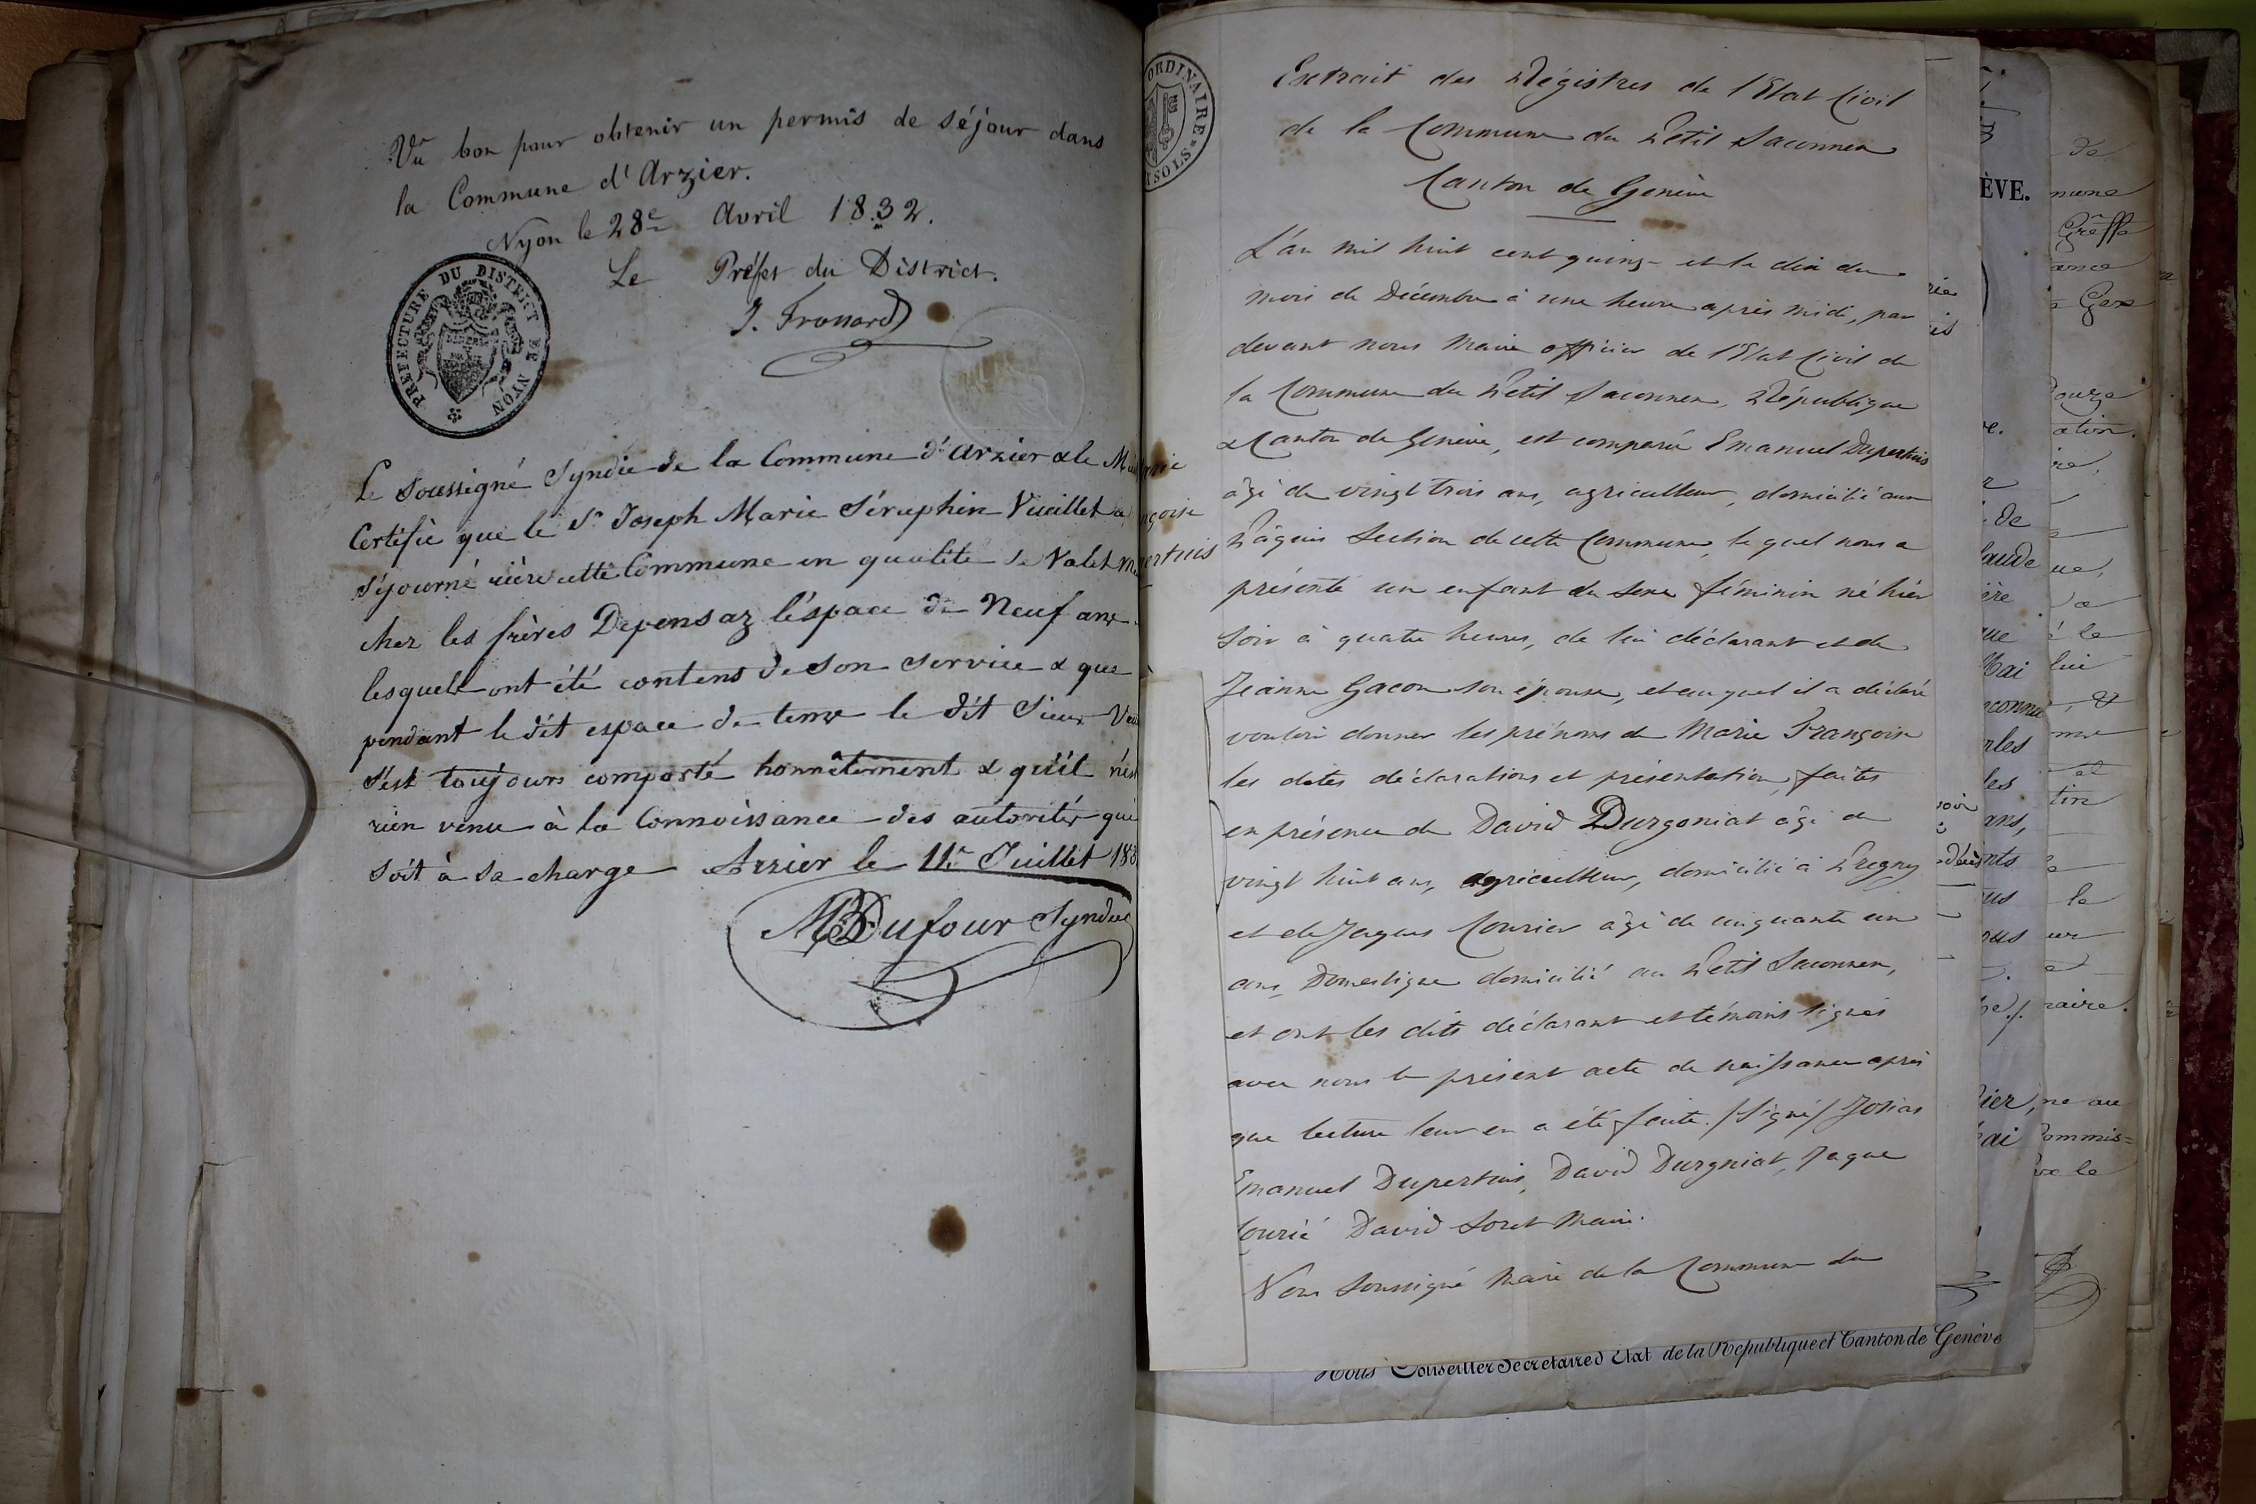 Vu bon pour obtenir un permis de séjour dans
la Commune d'Arzier.
Nyon le 28e Avril 1832.
Le Préfet du District.
PREFECTURE DU DISTRICT DE NYON
Le Soussigné Syndic de la Commune d'Arzier & le
Certifie que le Sr Joseph Marie Séraphin Vuaillet a
séjourné rière cette Commune en qualité de Valet
chez les frères Depensaz l'éspace de Neuf ans
lesquels ont été contens de son service & que
pendant le dit espace de tems le dit Sieur
s'est toujours comporté honnêtement & qu'il n'est
rien venu à la Connoissance des autorités qui
soit à sa charge Arzier le 11e Juillet 183
Dufour Syndic
ORDINAIRE
Extrait des Régistres de l'Etat Civil
de la Commune du Petit Saconnex
Canton de Genève
L'an mil huit cent quinze et le dix du
mois de Décembre à une heure après midi, par
devant nous Maire officier de l'Etat Civil de
la Commune du Petit Saconnex, République
& Canton de Genève, est comparu Emanuel Dupertuis
âgé de vingt trois ans, agriculteur, domicilié aux
Pâquis Section de cette Commune, lequel nous a
présenté un enfant du sexe féminin né hier
soir à quatre heures, de lui déclarant et de
Jeanne Gacon son épouse, et auquel il a déclaré
vouloir donner les prénoms de Marie Françoise
les dites déclarations et présentation faites
en présence de David Durgoniat âgé de
vingt huit ans, agriculteur, domicilié à Pregny
et de Jaques Courier âgé de cinquante un
ans, Domestique domicilié au Petit Saconnex,
et ont les dits déclarant et témoins signés
avec nous le présent acte de naissance après
que lecture leur en a été faite. /Signé/ Josias
Emanuel Dupertuis, David Durgniat, Jaque
Courié David Soret Maire.
Nous Soussigné Maire de la Commune du
Nous Conseiller Secretaire d'Etat de la République et Canton de Genève
ÈVE.